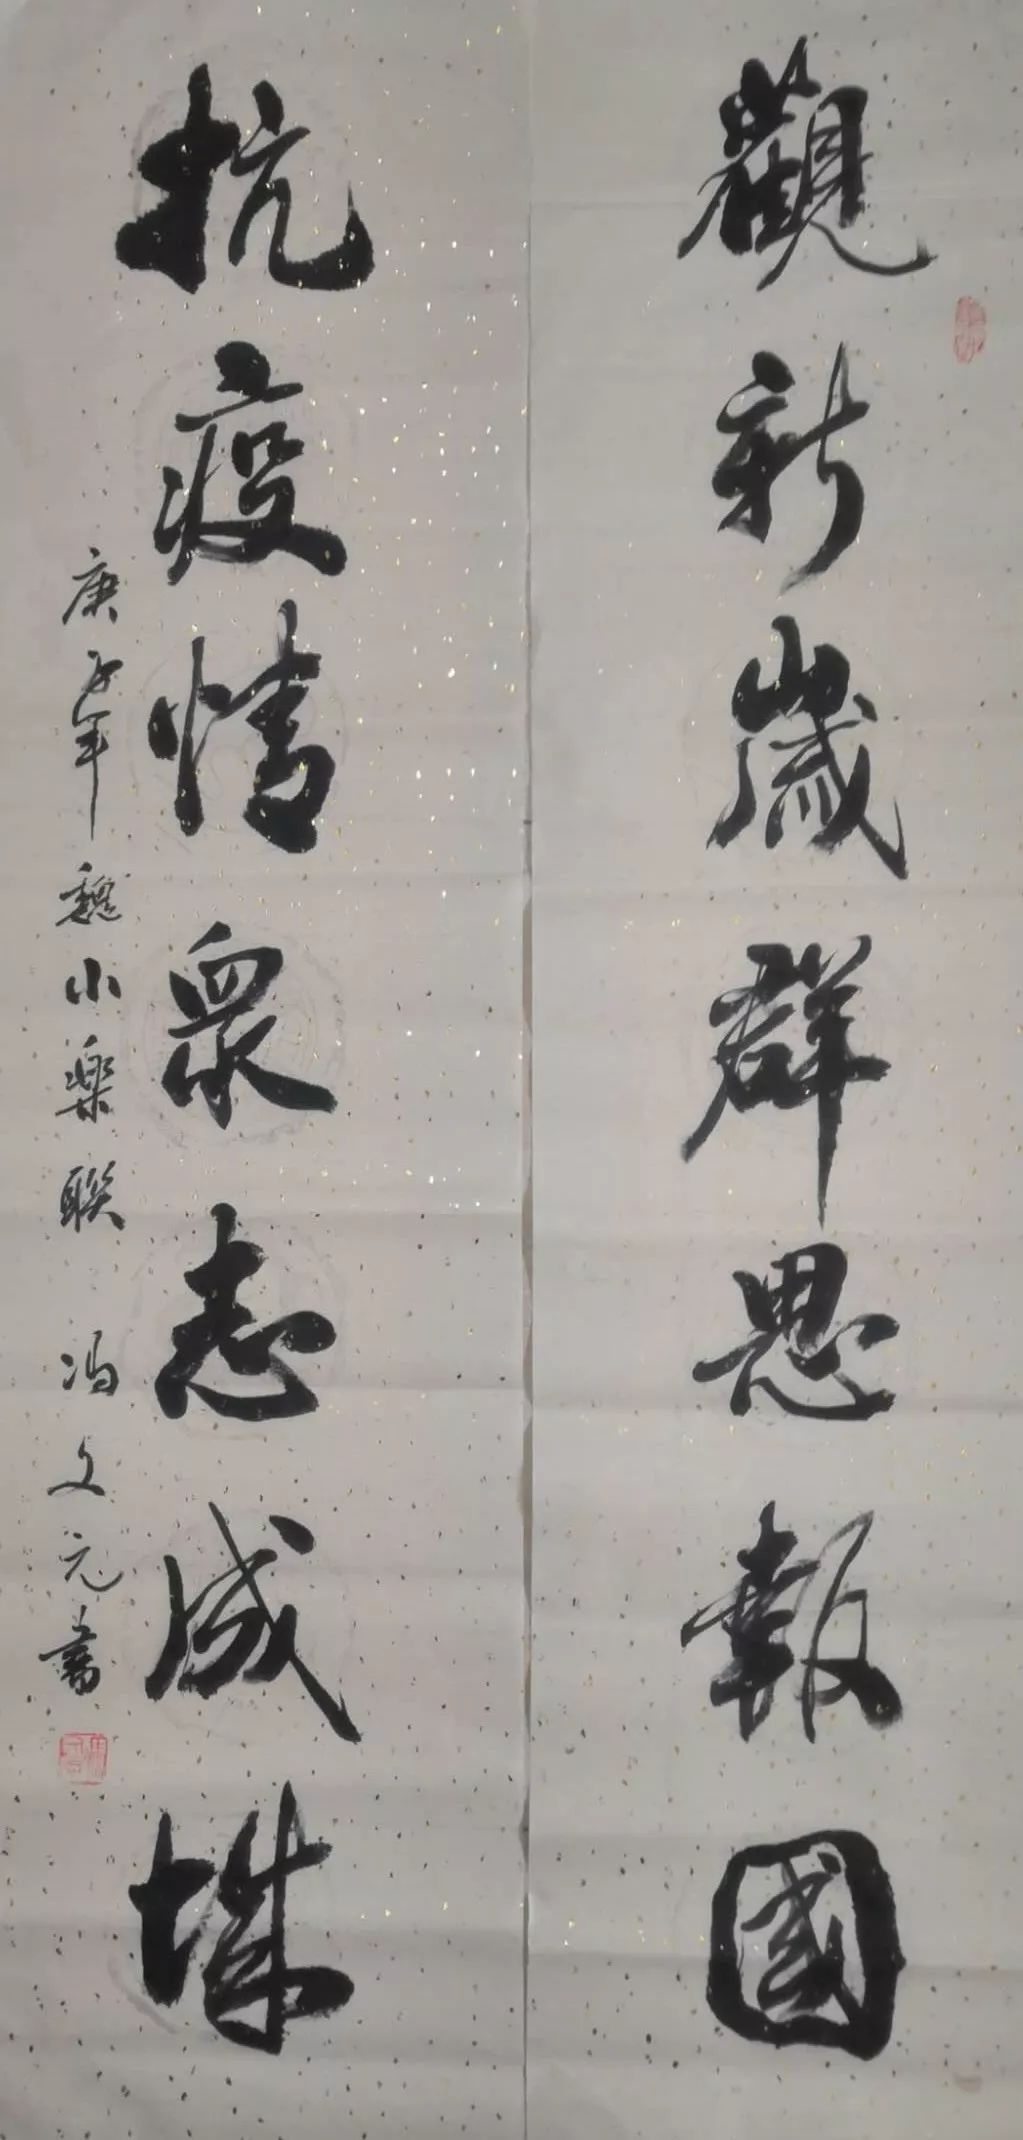 觀新歲群思報國
抗疫情眾志成城
庚子年魏小樂联冯文元書